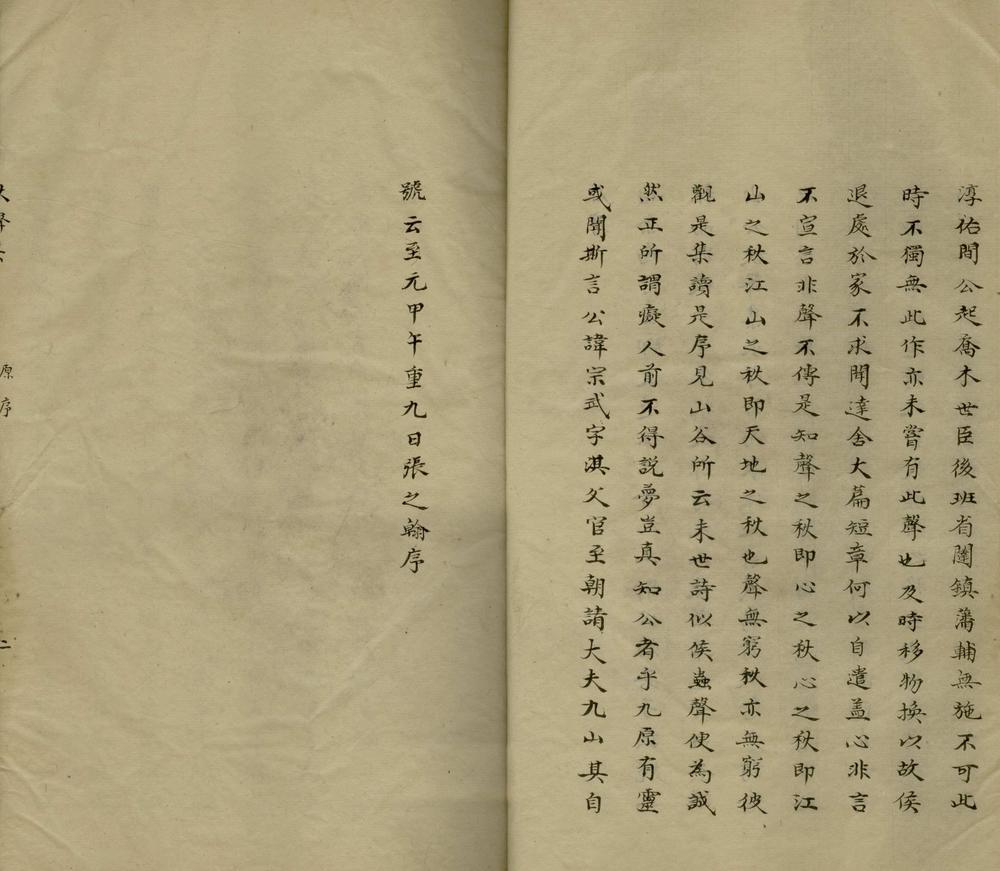 淳祐間公起喬木世臣後班省闥鎮藩輔無施不可此
時不獨無此作亦未嘗有此聲也及時移物換以故侯
退處於家不求聞達舍大篇短章何以自遣盖心非言
不宣言非聲不傳是知聲之秋即心之秋心之秋即江
山之秋江山之秋即天地之秋也聲無窮秋亦無窮彼
觀是集讀是序見山谷所云末世詩似候蟲聲使為誠
然正所謂癡人前不得説夢豈真知公者乎九原有靈
或聞斯言公諱宗武字淇父官至朝請大夫九山其自
號云至元甲午重九日張之翰序
原序
二